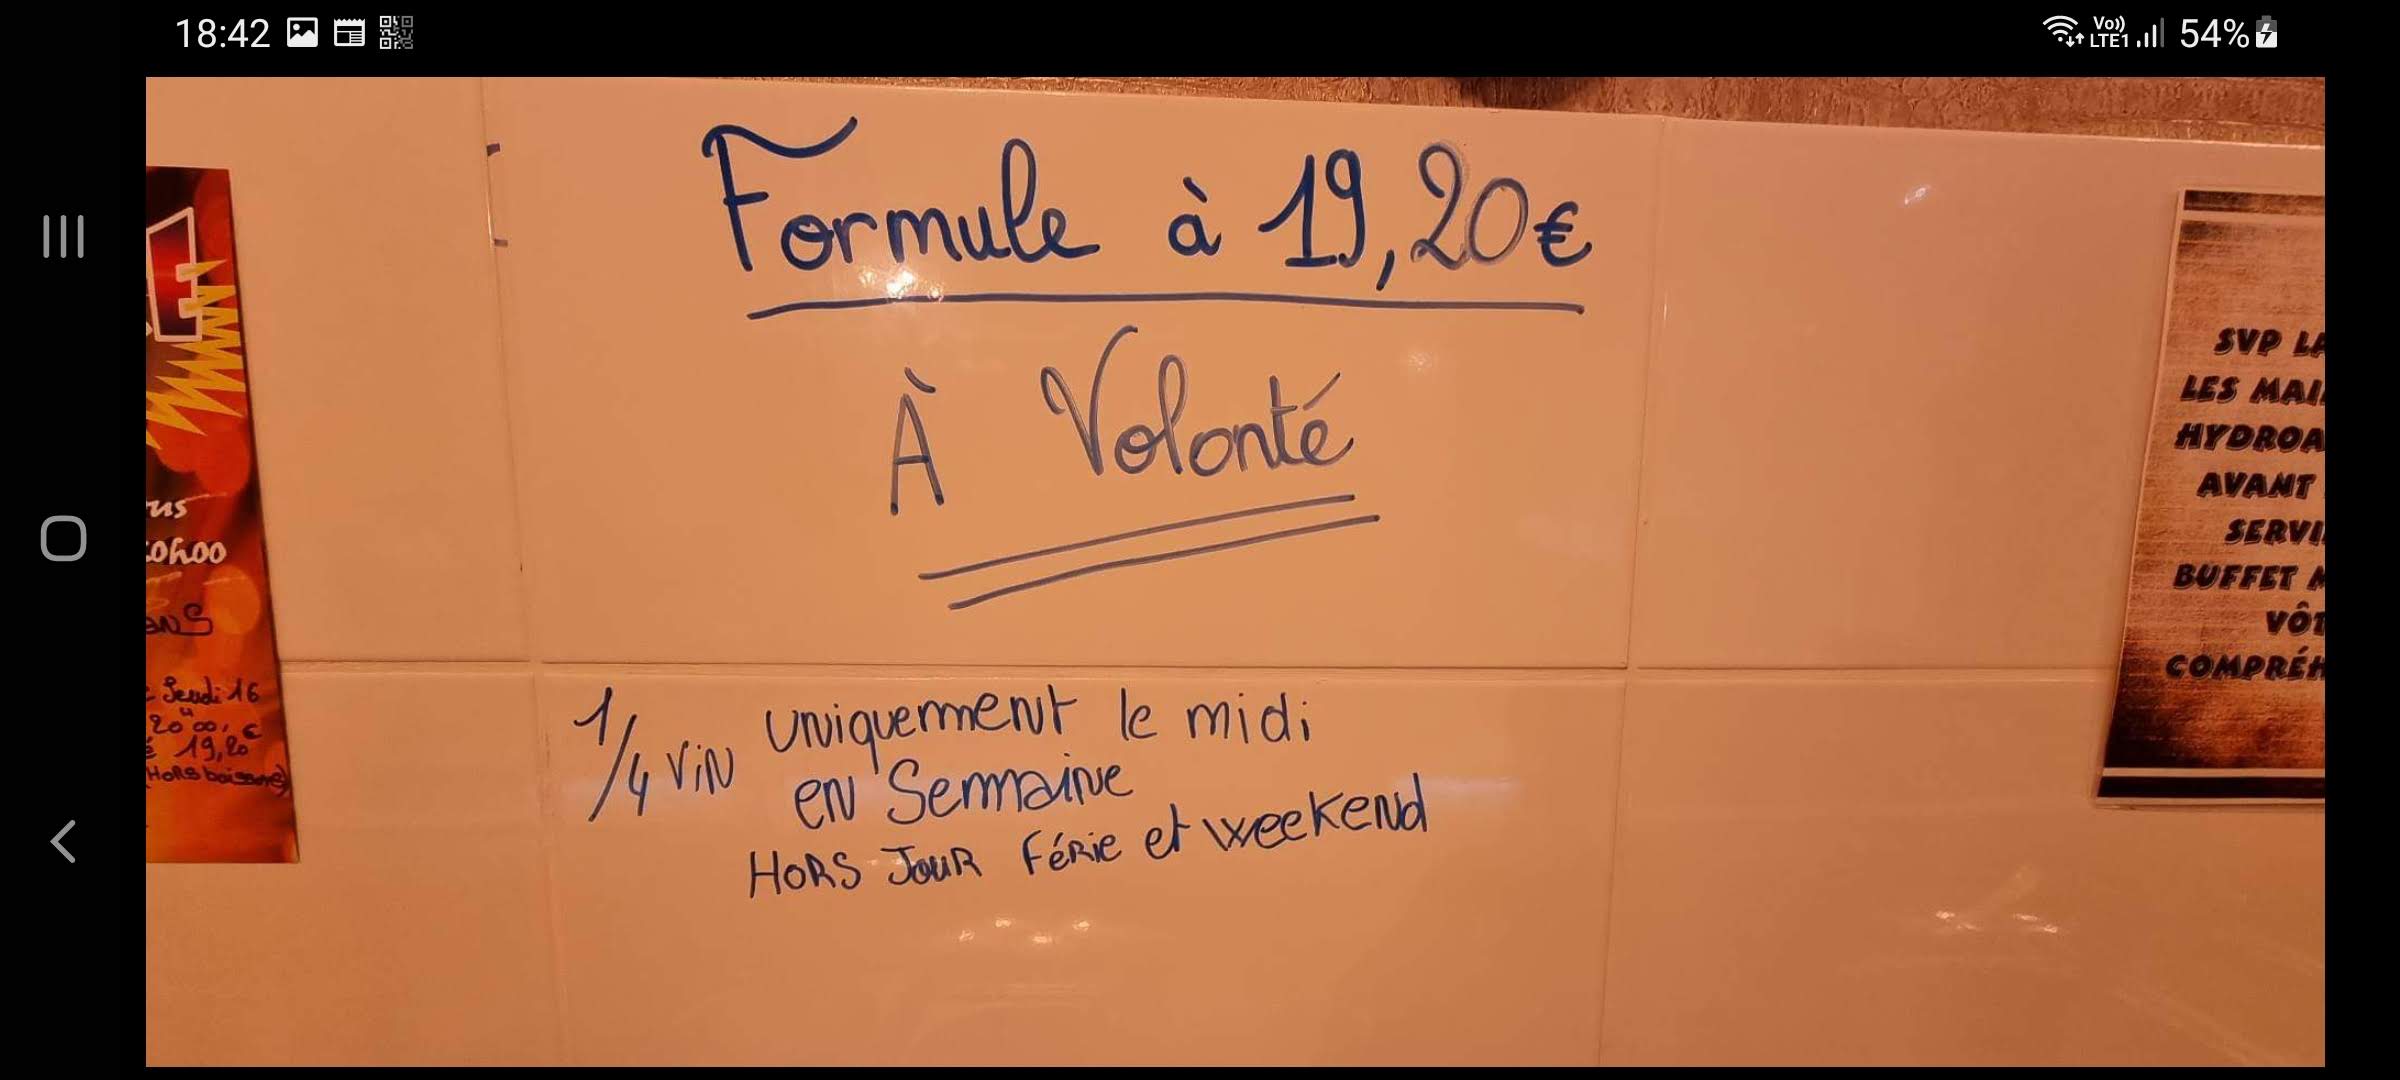 18:42
Vo))
LTE1
54%
Formule à 19,20€
À Volonté
1/4 ViN uniquement le midi
en Semaine
HORS JOUR Férie et weekend
us
0h00
Jeudi 16
20
19,20
Hors boissons)
SVP LA
LES MAI
HYDROA
AVANT
SERVI
BUFFET
VÔT
COMPRÉH